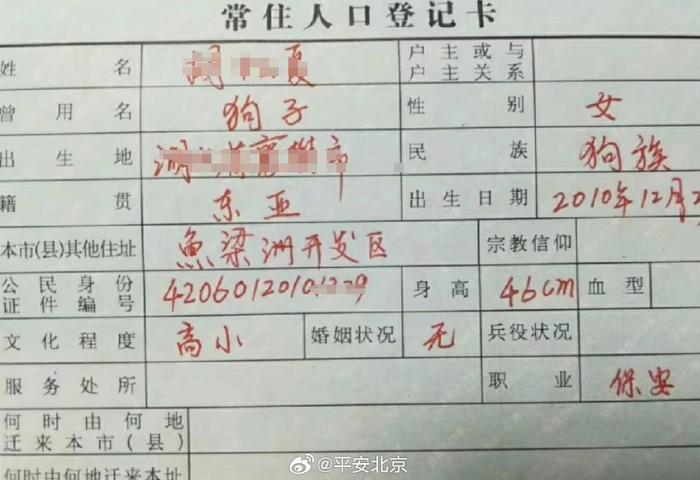 常住人口登记卡
姓名 夏 户主或与户主关系
曾用名 狗子 性别 女
出生地 市 民族 狗族
籍贯 东亚 出生日期 2010年12月2
本市(县)其他住址 鱼梁洲开发区 宗教信仰
公民身份证件编号 身高 46cm 血型
文化程度 高小 婚姻状况 无 兵役状况
服务处所 职业 保安
何时由何地迁来本市(县)
何时由何地迁来本址
@平安北京